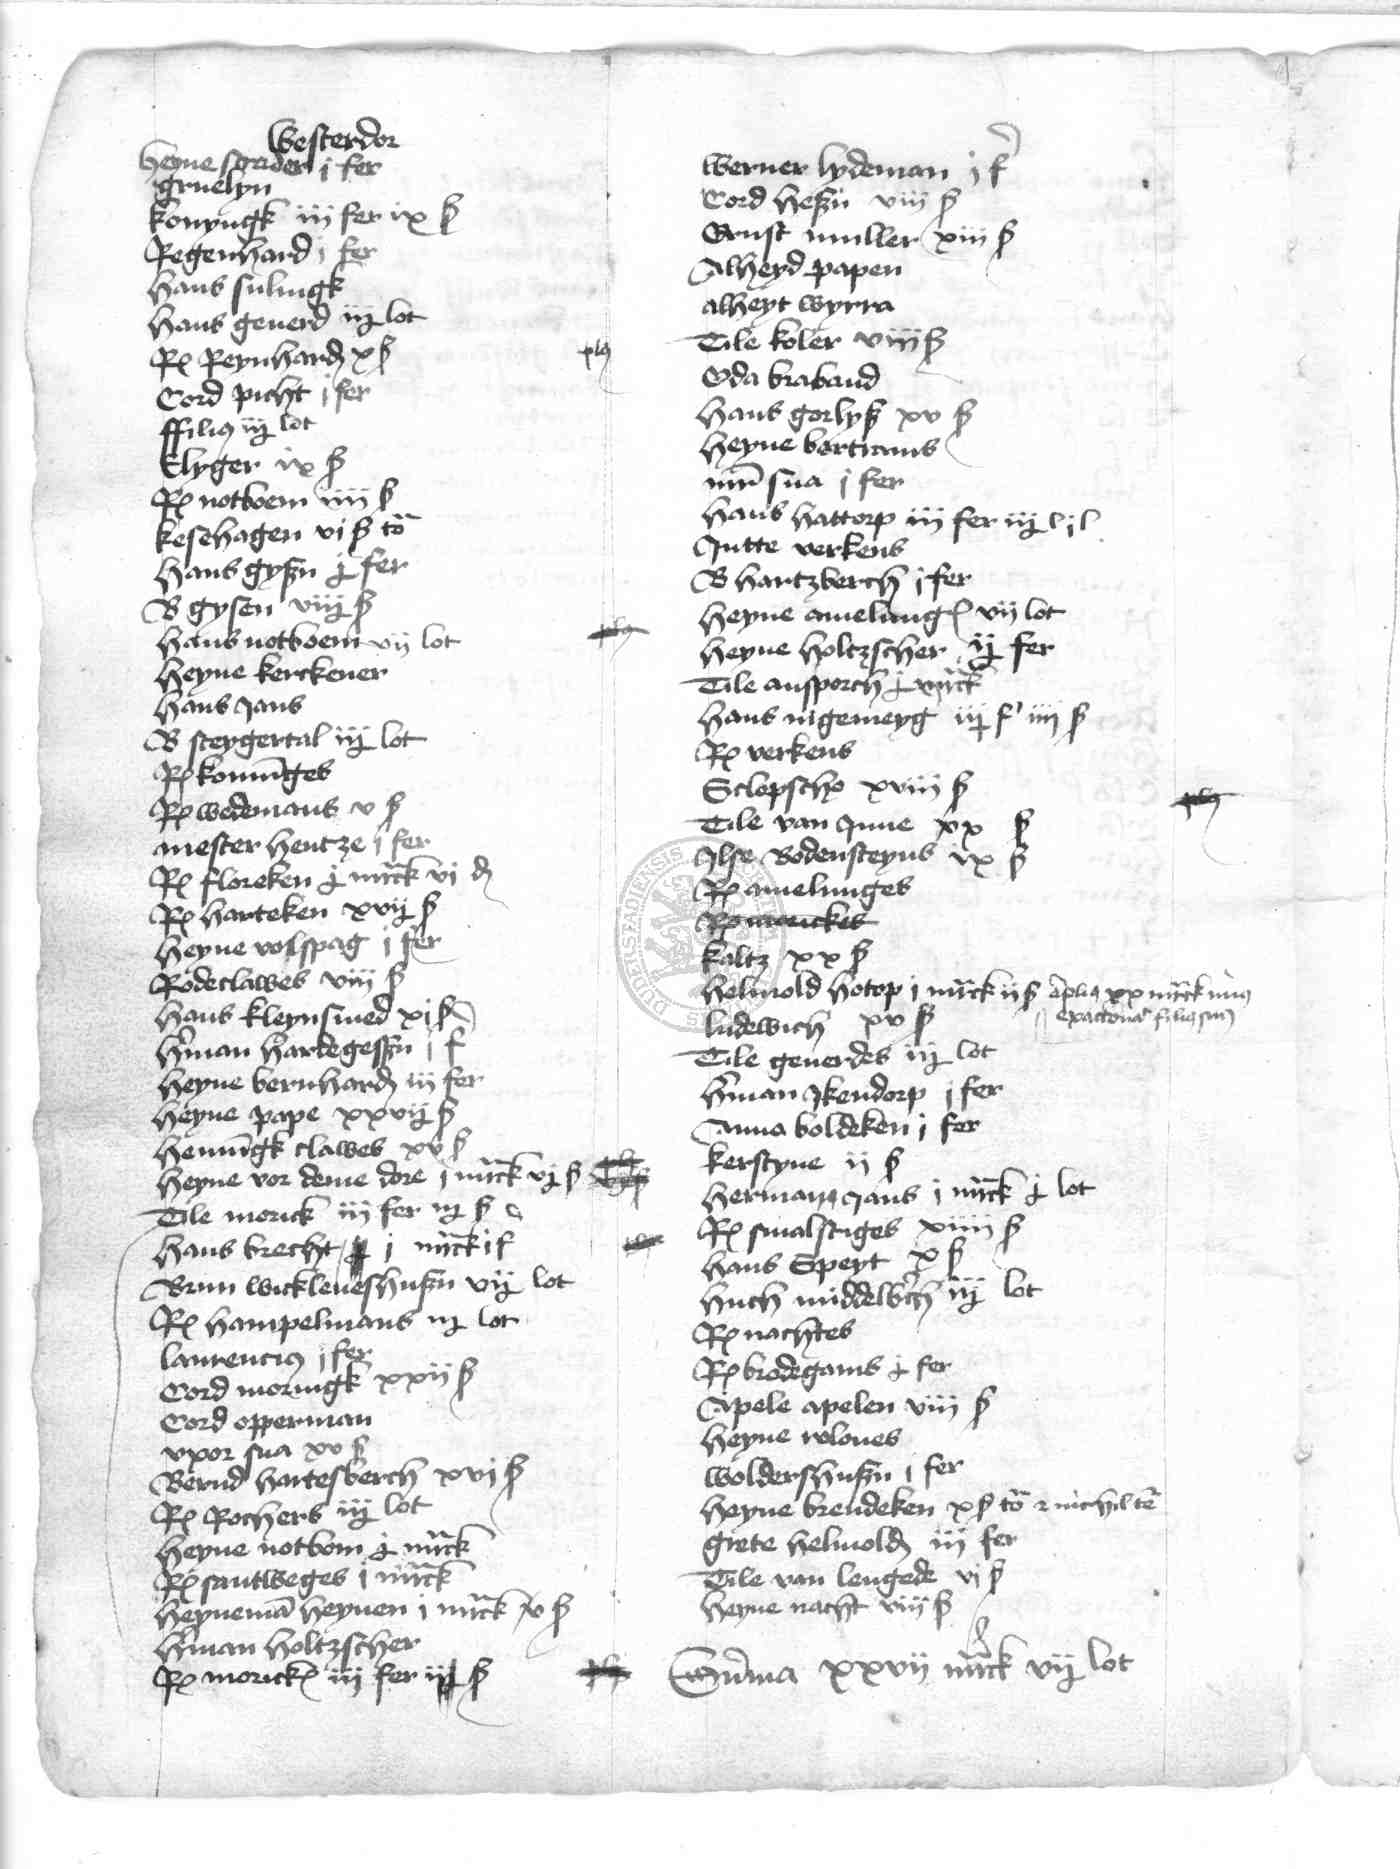 Westerdor
heyne scrider j fer
gruelyn
konyngk iij fer ix ß
Regenhard j fer
hans sulingk
hans geuerd iij lot
Rel Reynhard x ß
Cord picht j fer
ffilius iij lot
Elyger ix ß
Rel notboem iiij ß
kesehagen vj ß
hans gyßen fer
B gysen viij ß
hans notboem vij lot
heyne kerckener
hans Jans
B steygertal iij lot
Rel konninges
Rel wedemans v ß
mester hentze j fer
Rel floreken marck vj
Rel harteken xvij ß
heyne volspag j fer
Rodeclawes viij ß
hans kleynsmed xj ß
herman hardegessen j f
heyne bernhard iij fer
heyne pape xxvij ß
henningk clawes xv ß
heyne vor deme dore j marck vj ß
Tile morick iij fer ß
hans brecht j marck j f
Brun wickleueshußen vij lot
Rel hampelmans lot
laurencius j fer
Cord moringk xxij ß
Cord opperman
vxor sua xv ß
Bernd hartesberch xvj ß
Rel Rochers iij lot
heyne notbom marck
Rel santweges j marck
heyneman heynen j marck v ß
herman holtzscher
Rel morickes iij fer ß
werner lydeman j f
Cord heßen viij ß
Ernst muller xiij ß
Alheyd papen
alheyt wyrra
Tile koler viiij ß
Oda braband
hans gorlyß xv ß
heyne bertrams
mater sua j fer
hans hattorp iij fer
Jutte verkens
B hartzberch j fer
heyne amelunges vij lot
heyne holtzscher fer
Tile ansporch marck
hans nigemeyg f iiij ß
Rel verkens
Sclopscho xviij ß
Tile van June xx ß
Ilse Bodensteyns ix ß
Rel amelunges
Rel morickes
kaltz xx ß
helmold hotop j marck ij ß xx marck
ludewich xv ß
Tile geuerdes iij lot
herman Ikendorp j fer
Anna boldeken j fer
kerstyne ij ß
herman Jans j marck lot
Rel smalstiges xiiij ß
hans Speyt x ß
huch middelberch iij lot
Rel nachtes
Rel brodegams fer
Apele apelen viij ß
heyne roloues
woldershußen j fer
heyne brendeken x ß
grete helmold iij fer
Tile van lengede vj ß
heyne nacht viij ß
Summa xxvij marck vij lot